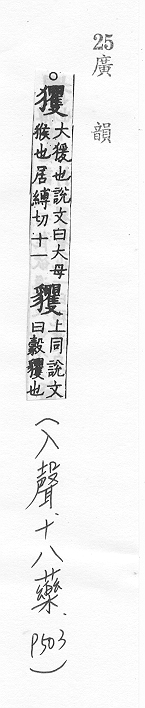 25廣韻
○玃大猨也說文曰大母
猴也居縛切十一貜上同說文
曰㺉玃也
(入聲、十八藥、P503)